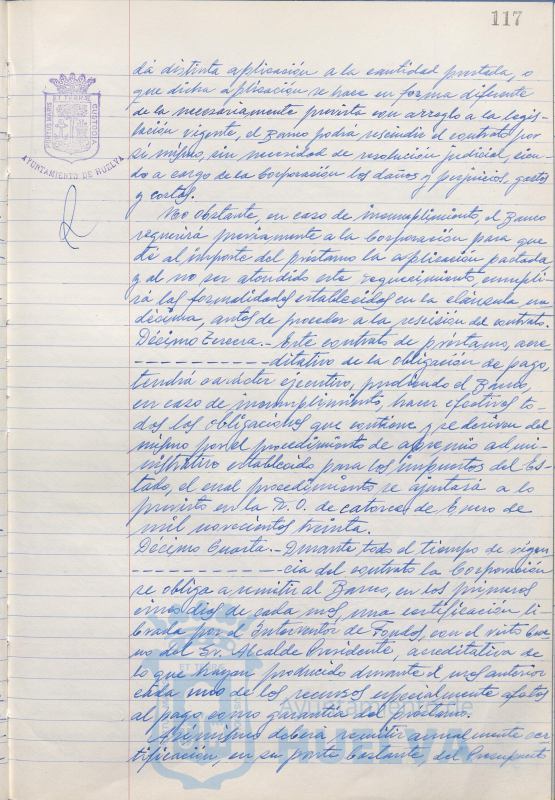 117
PORTUS MARIS
ET TERRE
CUSTODIA
AYUNTAMIENTO DE HUELVA
dá distinta aplicación a la cantidad prestada, o
que dicha aplicación se hace en forma diferente
de la necesariamente prevista con arreglo a la legis-
lación vigente, el Banco podrá rescindir el contrato por
sí mismo, sin necesidad de resolución judicial, sien-
do a cargo de la Corporación los daños y perjuicios, gastos
y costas.
No obstante, en caso de incumplimiento, el Banco
requerirá previamente a la Corporación para que
dé al importe del préstamo la aplicación pactada
y al no ser atendido este requerimiento, cumpli-
rá las formalidades establecidas en la cláusula un
décima, antes de proceder a la rescisión del contrato.
Décimo Tercera.- Este contrato de préstamo, acre
ditativo de la obligación de pago,
tendrá carácter ejecutivo, pudiendo el Banco,
en caso de incumplimiento, hacer efectivas to-
das las obligaciones que contiene y se deriven del
mismo por el procedimiento de apremio admi-
nistrativo establecido para los impuestos del Es-
tado, el cual procedimiento se ajustará a lo
previsto en la R.O. de catorce de Enero de
mil novecientos treinta.
Décimo Cuarta.- Durante todo el tiempo de vigen
cia del contrato la Corporación
se obliga a remitir al Banco, en los primeros
cinco días de cada mes, una certificación li
brada por el Interventor de Fondos, con el visto bue
no del Sr. Alcalde Presidente, acreditativa de
lo que hayan producido durante el mes anterior
cada uno de los recursos especialmente afectos
al pago como garantía del préstamo.
Asimismo deberá remitir anualmente cer
tificación, en su parte bastante, del Presupuest
Ayuntamiento de
HUELVA